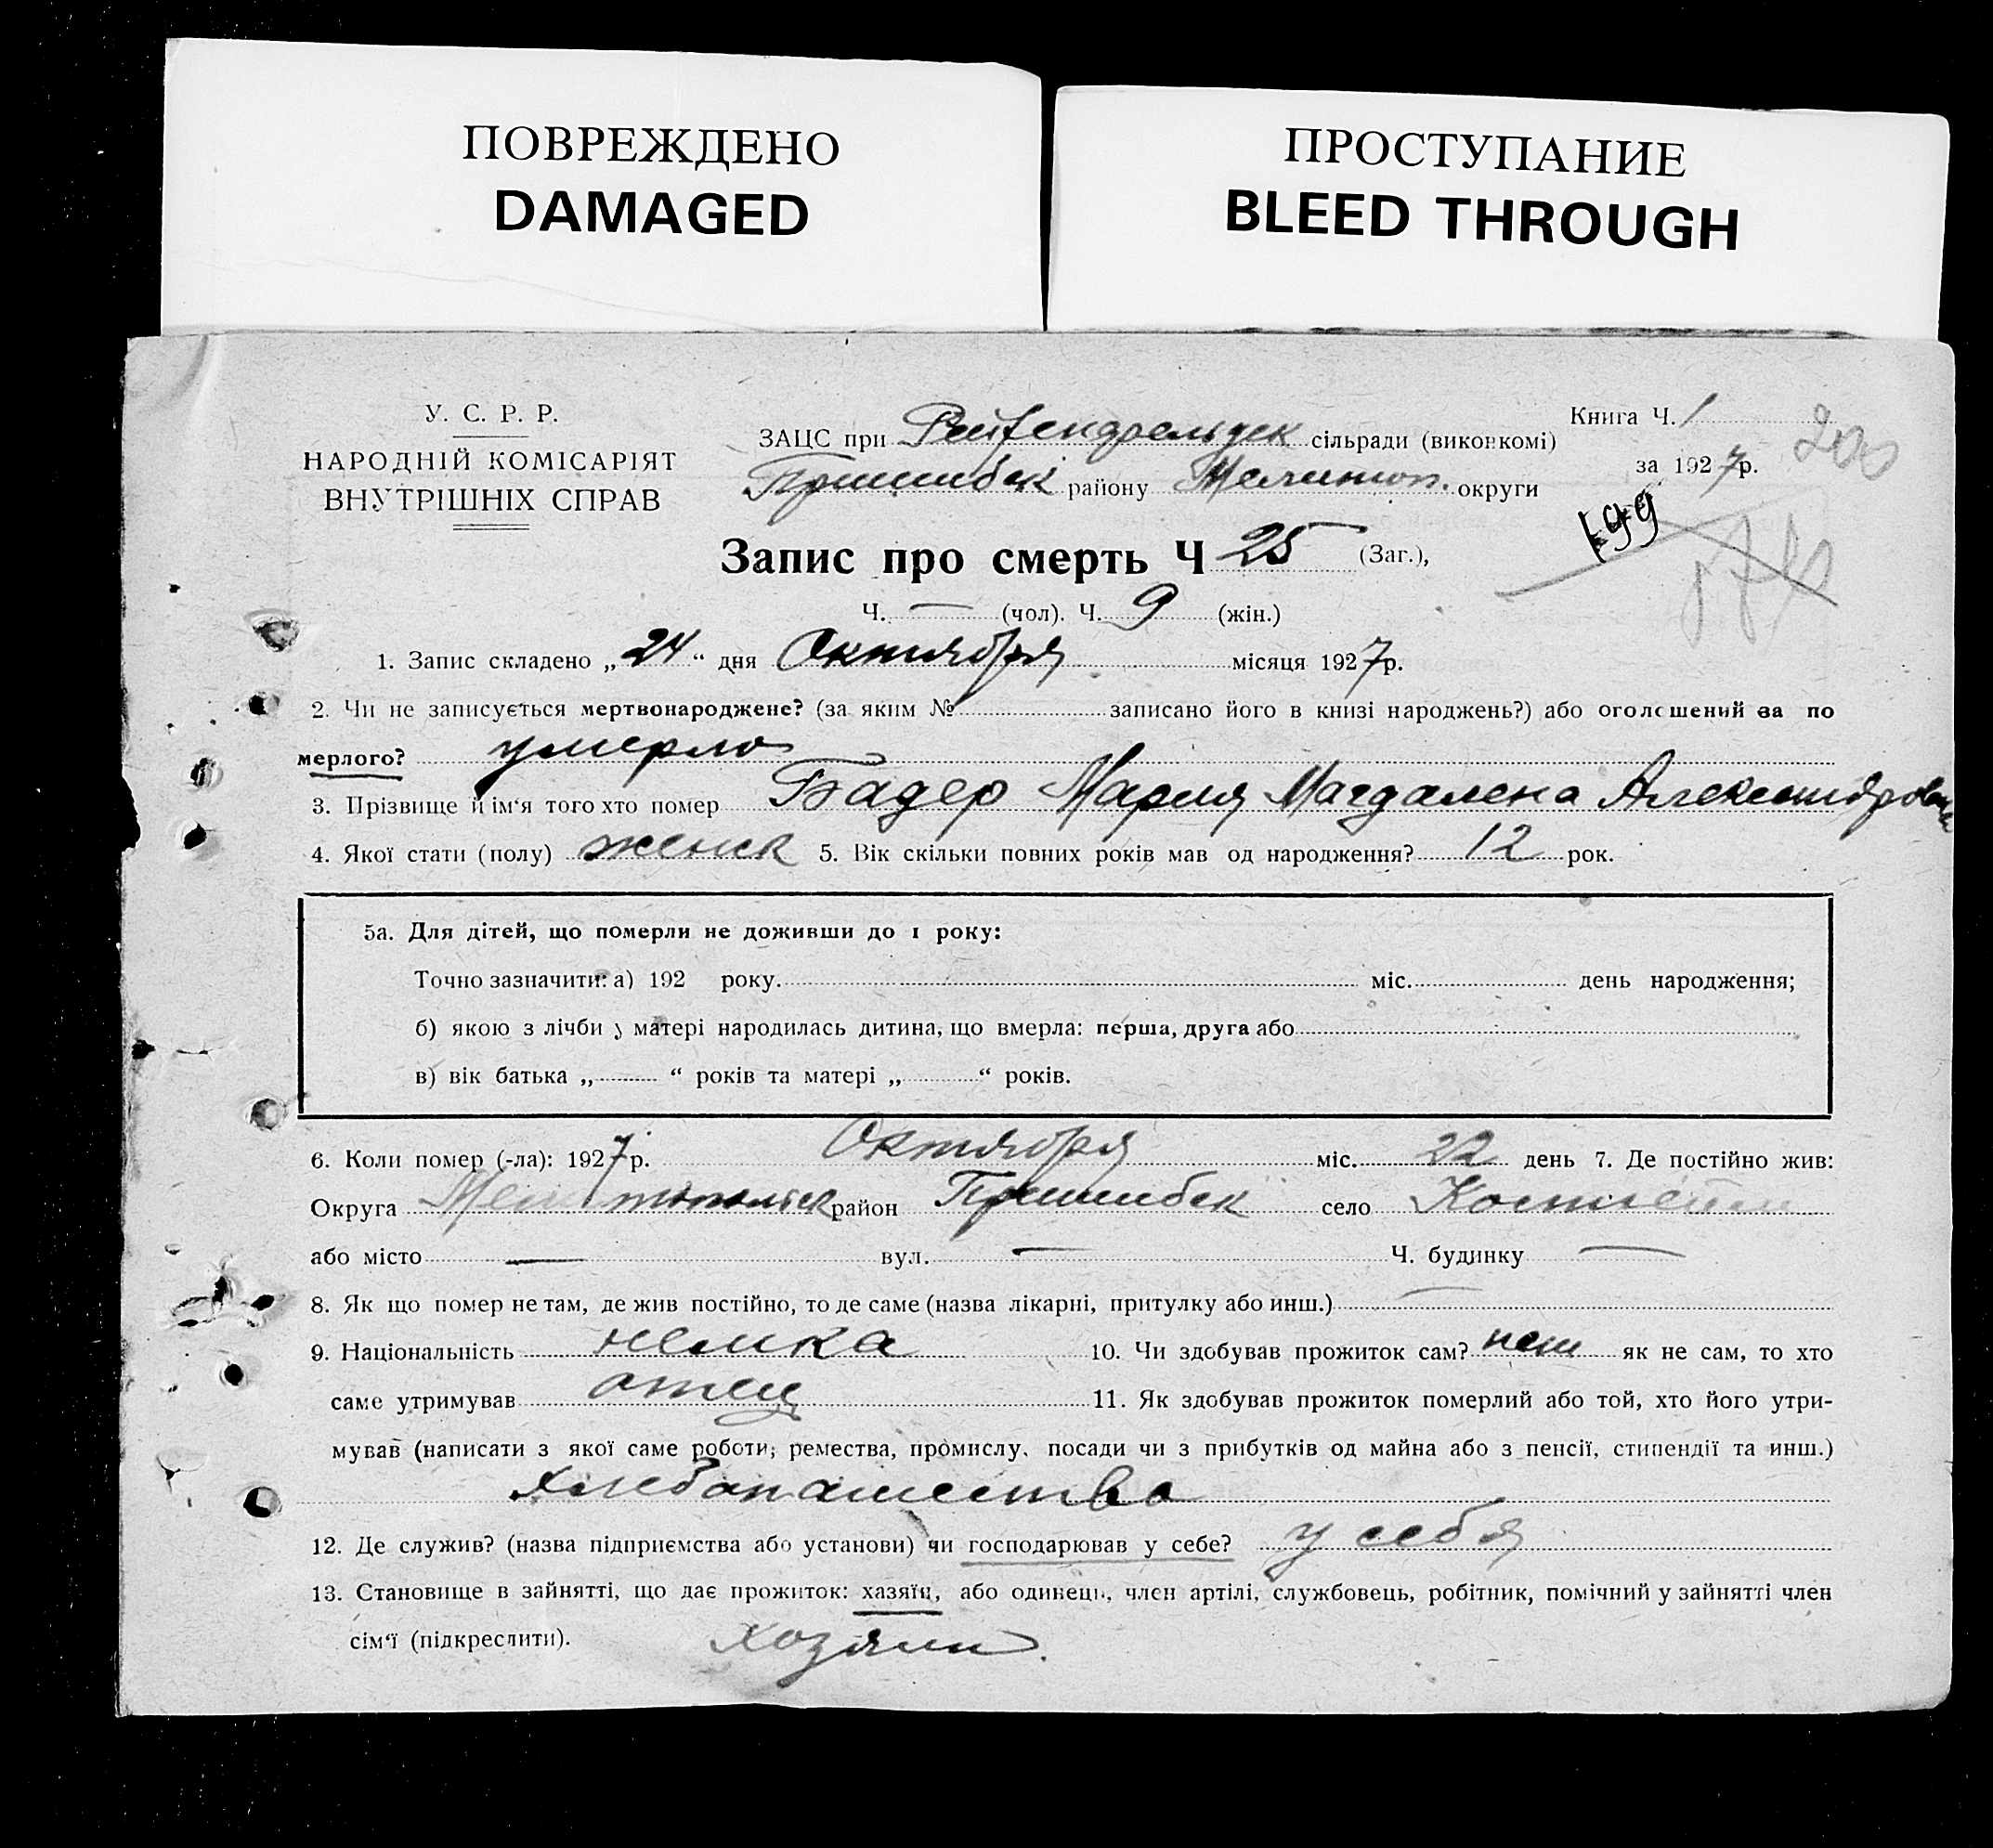 ПОВРЕЖДЕНО
DAMAGED
ПРОСТУПАНИЕ
BLEED THROUGH
У. С. Р. Р.
НАРОДНІЙ КОМІСАРІЯТ
ВНУТРІШНІХ СПРАВ
Книга Ч. 1
200
ЗАЦС при сільради (виконкомі)
за 1927 р.
Пришибск району Мелитоп. округи
199
Запис про смерть Ч 25 (Заг.),
Ч. — (чол). Ч. 9 (жін.)
1. Запис складено „24“ дня Октября місяця 1927 р.
2. Чи не записується мертвонароджене? (за яким № записано його в книзі народжень?) або оголошений за по
мерлого? умерло
3. Прізвище й ім'я того хто помер Бадер Мария Магдалена Александровна
4. Якої стати (полу) женск 5. Вік скільки повних років мав од народження? 12 рок.
5а. Для дітей, що померли не доживши до 1 року:
Точно зазначити: а) 192 року. міс. день народження;
б) якою з лічби у матері народилась дитина, що вмерла: перша, друга або
в) вік батька „ “ років та матері „ “ років.
6. Коли помер (-ла): 1927 р. Октября міс. 22 день 7. Де постійно жив:
Округа Мелитопольск район Пришибск село
або місто — вул. — Ч. будинку —
8. Як що помер не там, де жив постійно, то де саме (назва лікарні, притулку або инш.) —
9. Національність немка 10. Чи здобував прожиток сам? нет як не сам, то хто
саме утримував отец 11. Як здобував прожиток померлий або той, хто його утри-
мував (написати з якої саме роботи, ремества, промислу, посади чи з прибутків од майна або з пенсії, стипендії та инш.)
хлебопашество
12. Де служив? (назва підприємства або установи) чи господарював у себе? у себя
13. Становище в зайнятті, що дає прожиток: хазяїн, або одинець, член артілі, службовець, робітник, помічний у зайнятті член
сім'ї (підкреслити). хозяин.